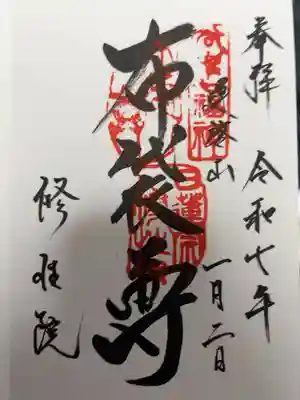 奉拝
令和七年
一月二日
布袋尊
修性院